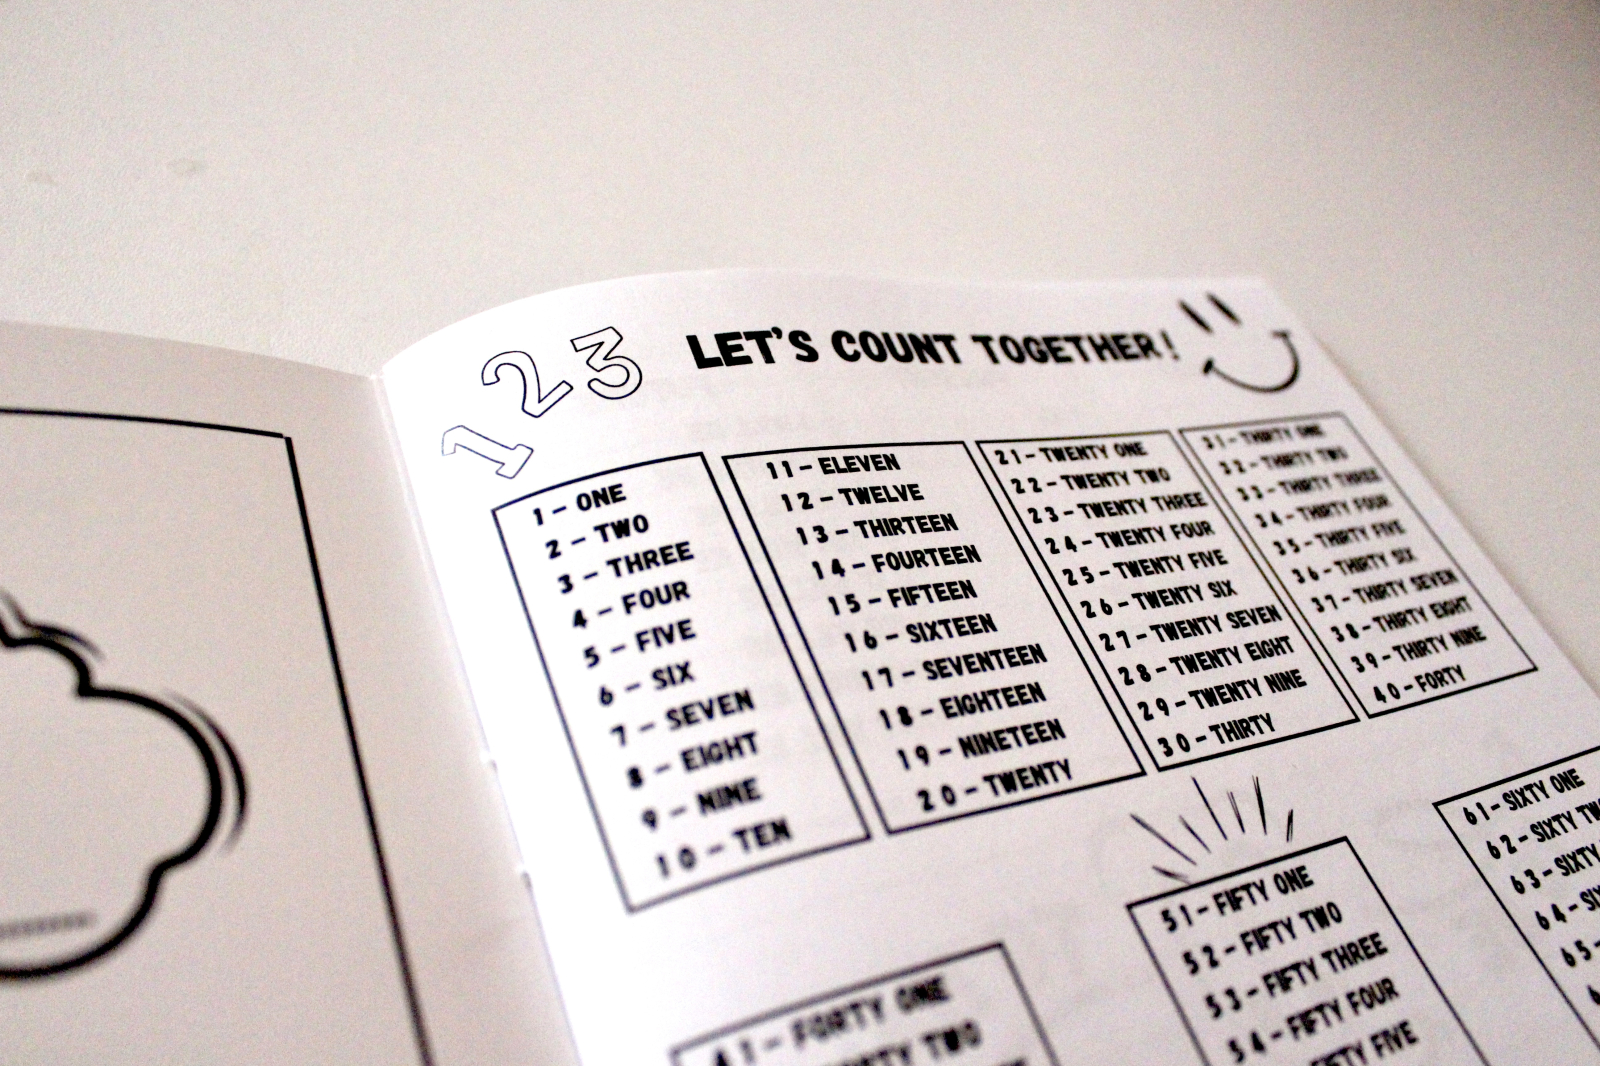 1 2 3
LET'S COUNT TOGETHER!
1 - ONE
2 - TWO
3 - THREE
4 - FOUR
5 - FIVE
6 - SIX
7 - SEVEN
8 - EIGHT
9 - NINE
10 - TEN
11 - ELEVEN
12 - TWELVE
13 - THIRTEEN
14 - FOURTEEN
15 - FIFTEEN
16 - SIXTEEN
17 - SEVENTEEN
18 - EIGHTEEN
19 - NINETEEN
20 - TWENTY
21 - TWENTY ONE
22 - TWENTY TWO
23 - TWENTY THREE
24 - TWENTY FOUR
25 - TWENTY FIVE
26 - TWENTY SIX
27 - TWENTY SEVEN
28 - TWENTY EIGHT
29 - TWENTY NINE
30 - THIRTY
31 - THIRTY ONE
32 - THIRTY TWO
33 - THIRTY THREE
34 - THIRTY FOUR
35 - THIRTY FIVE
36 - THIRTY SIX
37 - THIRTY SEVEN
38 - THIRTY EIGHT
39 - THIRTY NINE
40 - FORTY
41 - FORTY ONE
TWO
51 - FIFTY ONE
52 - FIFTY TWO
53 - FIFTY THREE
54 - FIFTY FOUR
FIFTY FIVE
61 - SIXTY ONE
62 - SIXTY TWO
63 - SIXTY
64 -
65 -